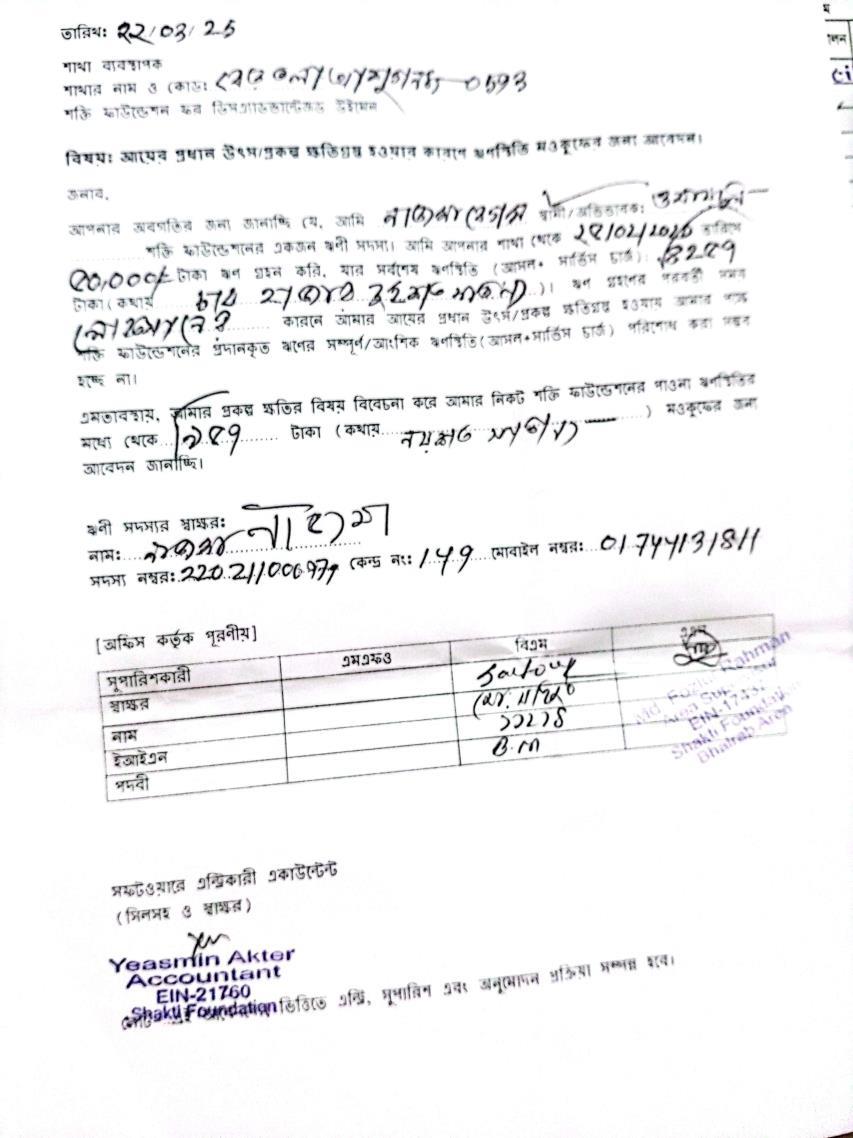 তারিখ: 22/03/25
শাখা ব্যবস্থাপক
শাখার নাম ও কোড: 0593
শক্তি ফাউন্ডেশন ফর ডিসএ্যাডভান্টেজড উইমেন
বিষয়: আয়ের প্রধান উৎস/প্রকল্প ক্ষতিগ্রস্থ হওয়ার কারণে ঋণস্থিতি মওকুফের জন্য আবেদন।
জনাব,
আপনার অবগতির জন্য জানাচ্ছি যে, আমি নাজমা বেগম স্বামী/অভিভাবক:
শক্তি ফাউন্ডেশনের একজন ঋণী সদস্য। আমি আপনার শাখা থেকে তারিখে
50,000/- টাকা ঋণ গ্রহন করি, যার সর্বশেষ ঋণস্থিতি (আসল+ সার্ভিস চার্জ): ৪২৫৭
টাকা (কথায় চার হাজার দুইশত সাতান্ন)। ঋণ গ্রহনের পরবর্তী সময়
কারনে আমার আয়ের প্রধান উৎস/প্রকল্প ক্ষতিগ্রস্থ হওয়ায় আমার পক্ষে
শক্তি ফাউন্ডেশনের প্রদানকৃত ঋণের সম্পূর্ণ/আংশিক ঋণস্থিতি(আসল+সার্ভিস চার্জ) পরিশোধ করা সম্ভব
হচ্ছে না।
এমতাবস্থায়, আমার প্রকল্প ক্ষতির বিষয় বিবেচনা করে আমার নিকট শক্তি ফাউন্ডেশনের পাওনা ঋণস্থিতির
মধ্যে থেকে ৯৫৭ টাকা (কথায় নয়শত সাতান্ন) মওকুফের জন্য
আবেদন জানাচ্ছি।
ঋণী সদস্যর স্বাক্ষর:
নাম: নাজমা
সদস্য নম্বর: কেন্দ্র নং: 149 মোবাইল নম্বর: 01744131811
[অফিস কর্তৃক পূরণীয়]
সুপারিশকারী এমএফও বিএম
স্বাক্ষর
নাম
ইআইএন
পদবী B.M
Md. Fozlur Rahman
Area Supervisor
Shakti Foundation
Bhairab Area
সফটওয়ারে এন্ট্রিকারী একাউন্টেন্ট
(সিলসহ ও স্বাক্ষর)
Yeasmin Akter
Accountant
EIN-21760
Shakti Foundation
ভিত্তিতে এন্ট্রি, সুপারিশ এবং অনুমোদন প্রক্রিয়া সম্পন্ন হবে।